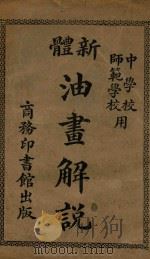 中學校
師範學校用
新體
油畫解說
商務印書館出版